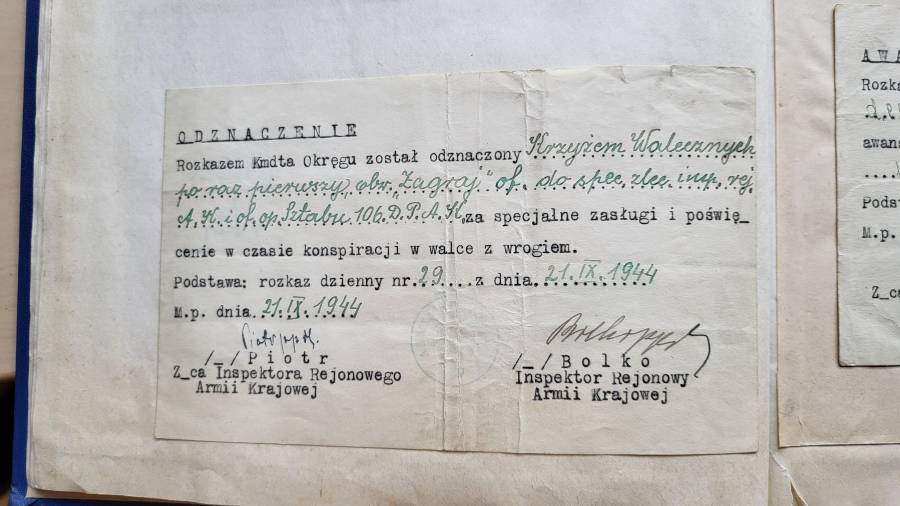 ODZNACZENIE
Rozkazem Kmdta Okręgu został odznaczony Krzyżem Walecznych
po raz pierwszy, obr. "Zagraj" of. do spec. zlec. insp. rej.
A.K. i of. op. Sztabu 106. D.P.A.K. za specjalne zasługi i poświę_
cenie w czasie konspiracji w walce z wrogiem.
Podstawa: rozkaz dzienny nr. 29....z dnia 21.IX.1944
M.p. dnia 21.IX.1944
Piotr ppłk.
/_/ Piotr
Z_ca Inspektora Rejonowego
Armii Krajowej
Bolko ppłk
/_/ Bolko
Inspektor Rejonowy
Armii Krajowej
AWA
Rozka
awans
Podst
M.p.
Z_ca